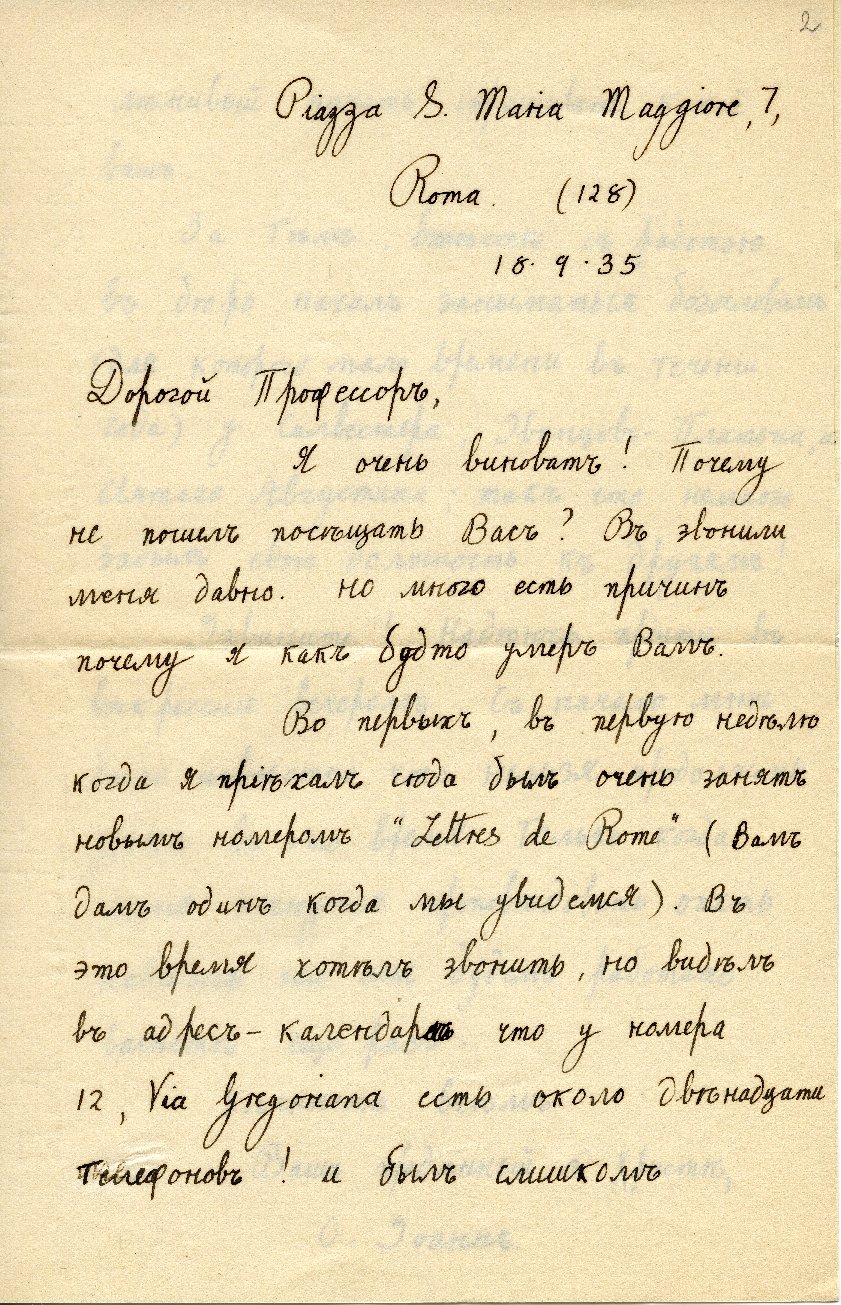 2
Piazza S. Maria Maggiore, 7,
Roma. (128)
18 · 9 · 35
Дорогой Профессоръ,
Я очень виноватъ! Почему
не пошелъ посѣщать Васъ? Въ звонили
меня давно. Но много есть причинъ
почему я какъ будто умеръ Вамъ.
Во первыхъ, въ первую недѣлю
когда я пріѣхалъ сюда былъ очень занятъ
новымъ номеромъ "Lettres de Rome" (Вамъ
дамъ одинъ когда мы увидемся) Въ
это время хотѣлъ звонить, но видѣлъ
въ адресъ-календарѣ что у номера
12, Via Gregoriana есть около двѣнадцати
телефоновъ! и былъ слишкомъ